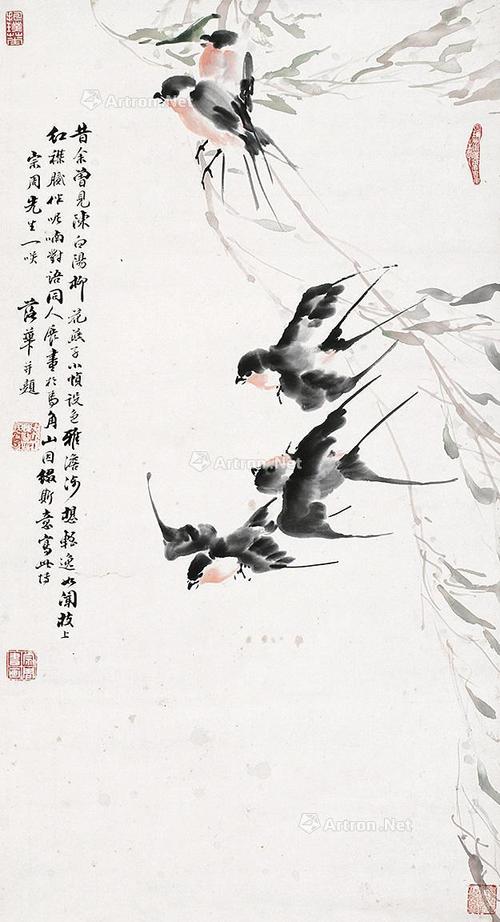 昔余曾见陳白陽柳花燕子小幀设色雅澹沙想輕逸如闻枝上
红襟腻伴呢喃對语同人展畫於馬角山因缀斯意寫此待
宗周先生一咲
華并題
Artron.Net
Artron.Net
Artron.Net